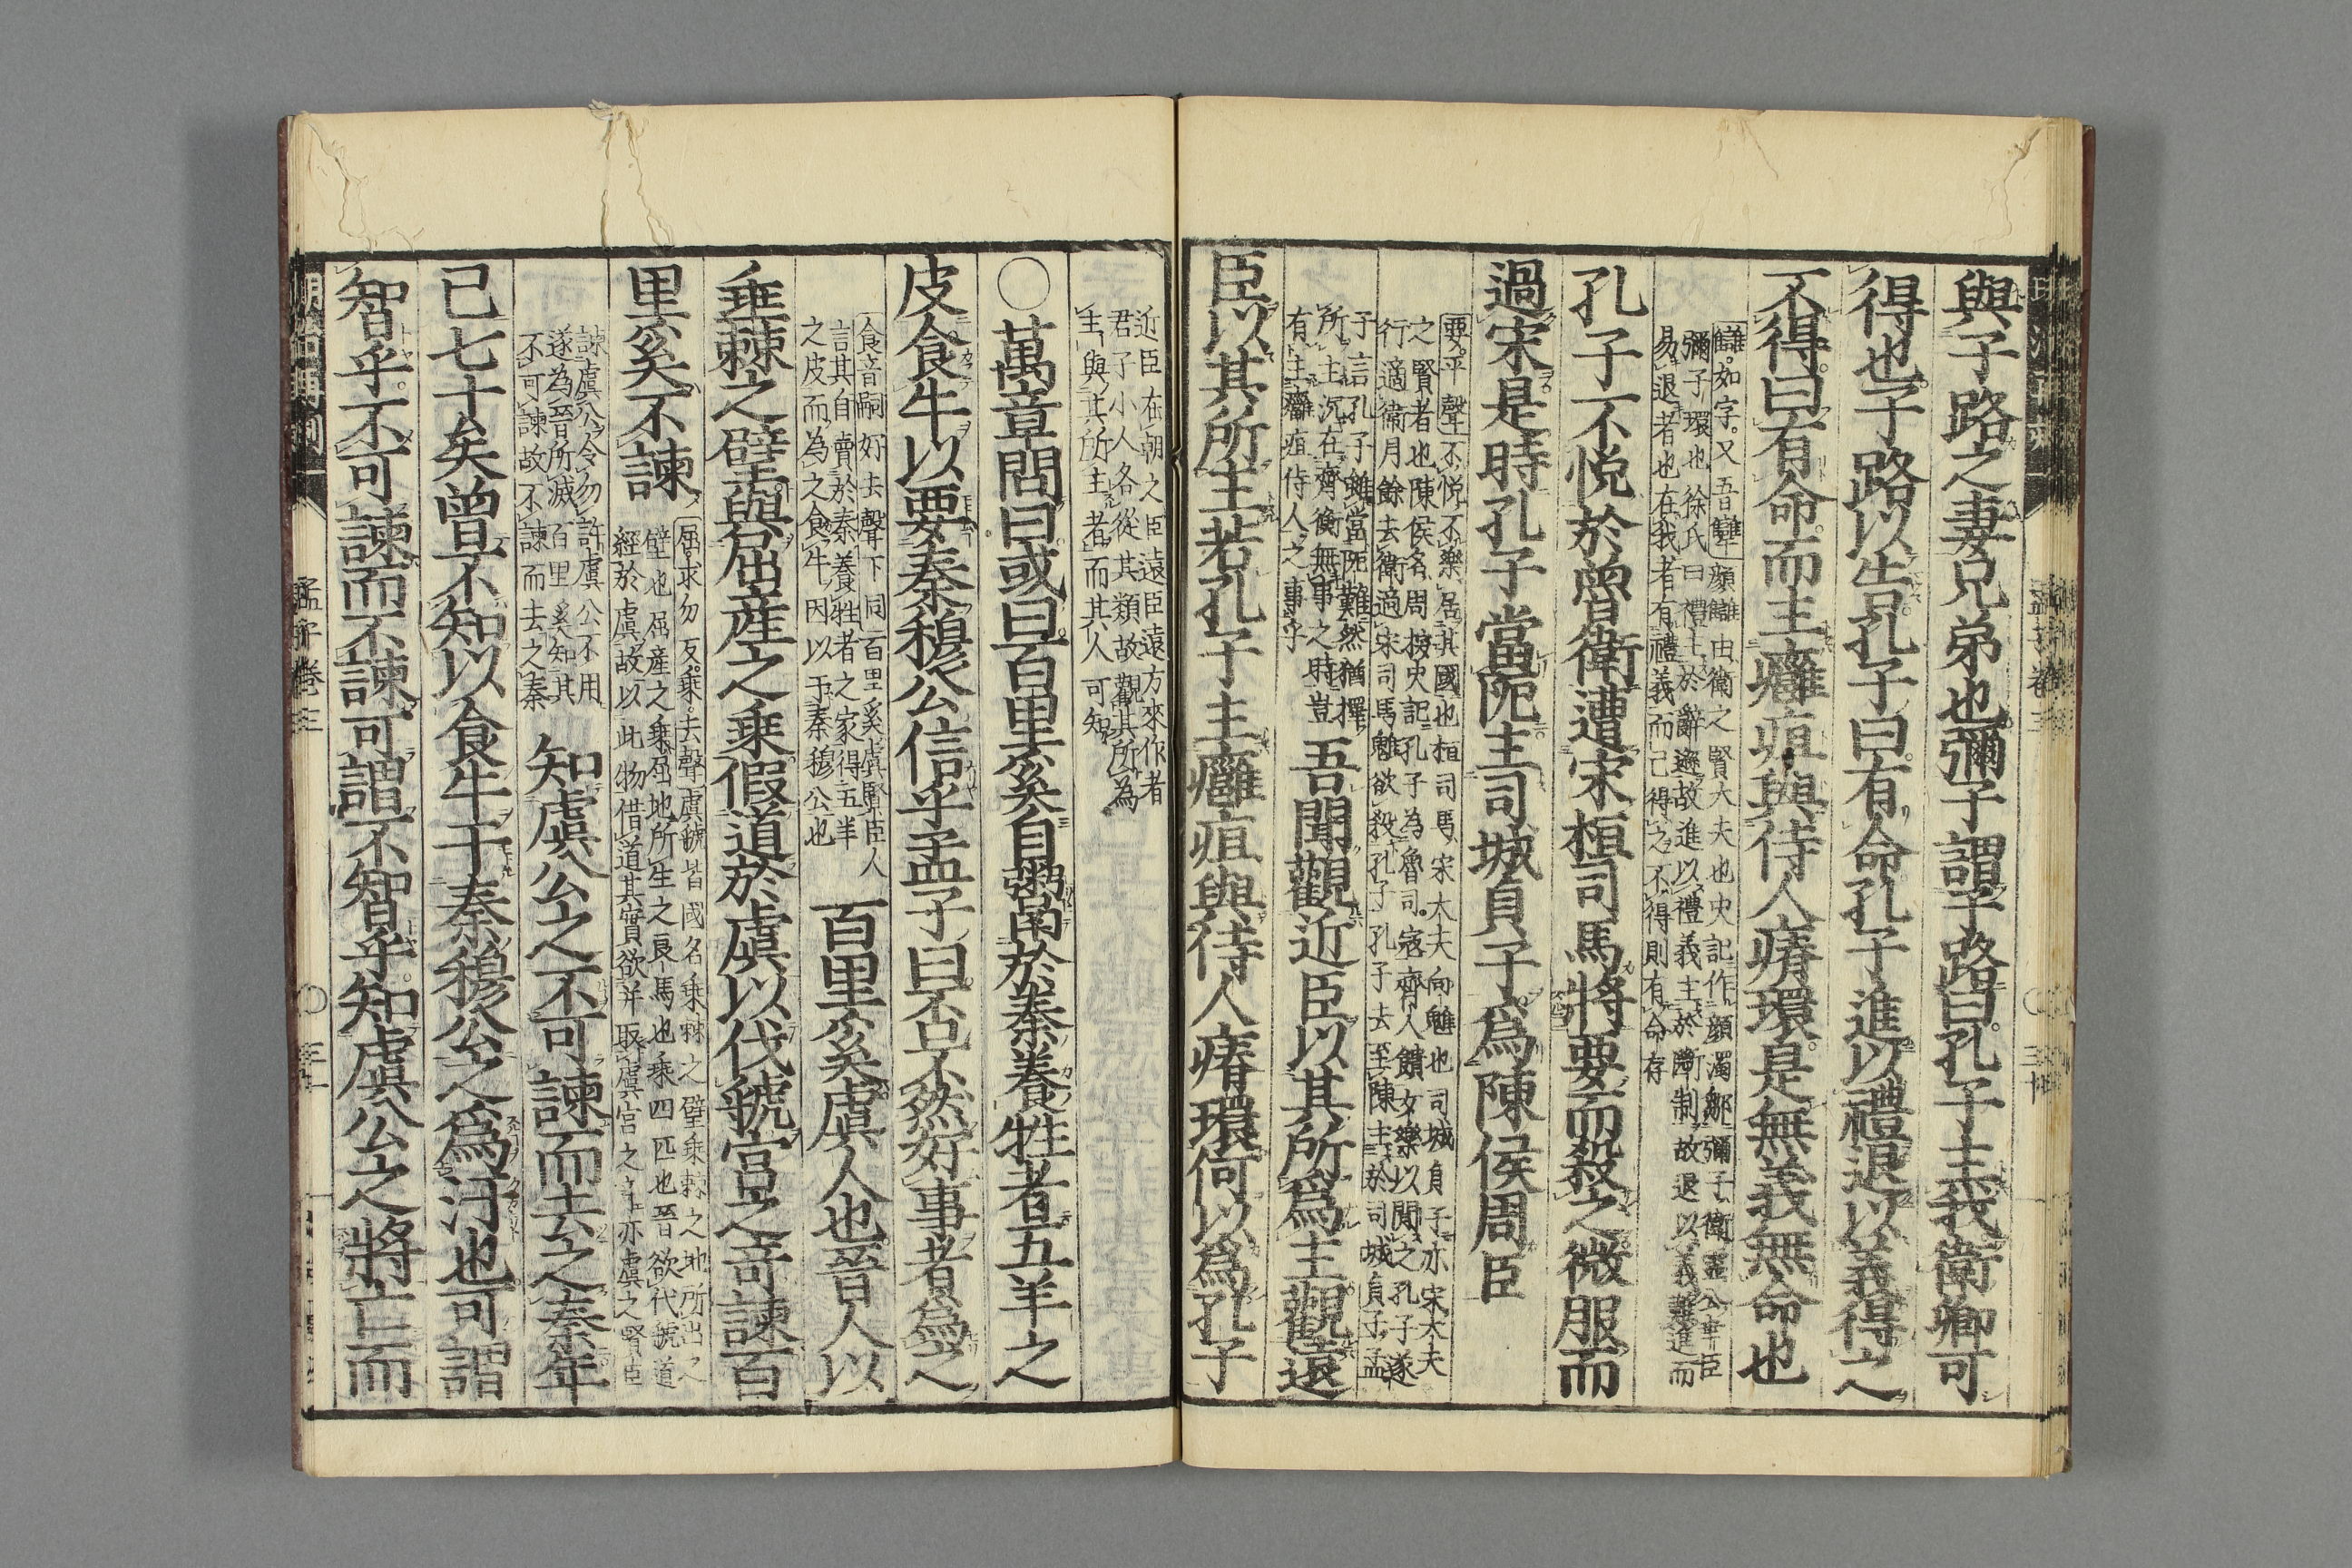 與子路之妻兄弟也彌子謂子路曰孔子主我衛卿可
得也子路以告孔子曰有命孔子進以禮退以義得之
不得曰有命而主癰疽與侍人瘠環是無義無命也
讎如字又音犨顔讎由衛之賢大夫也史記作顔濁鄒彌子衛靈公幸臣
彌子瑕也徐氏曰禮主於辭遜故進以禮義主於斷制故退以義難進而
易退者也在我者有禮義而已得之不得則有命存
孔子不悦於魯衛遭宋桓司馬將要而殺之微服而
過宋是時孔子當阨主司城貞子爲陳侯周臣
要平聲不悦不樂居其國也桓司馬宋大夫向魋也司城貞子亦宋大夫
之賢者也陳侯名周按史記孔子為魯司寇齊人饋女樂以間之孔子遂
行適衛月餘去衛適宋司馬魋欲殺孔子孔子去至陳主於司城貞子孟
子言孔子雖當阨難然猶擇
所主況在齊衛無事之時豈
有主癰疽侍人之事乎
吾聞觀近臣以其所爲主觀遠
臣以其所主若孔子主癰疽與侍人瘠環何以爲孔子
近臣在朝之臣遠臣遠方來仕者
君子小人各從其類故觀其所為
主與其所主者而其人可知
〇萬章問曰或曰百里奚自鬻於秦養牲者五羊之
皮食牛以要秦穆公信乎孟子曰否不然好事者爲之
食音嗣好去聲下同百里奚虞賢臣人
言其自賣於秦養牲者之家得五羊
之皮而為之食牛因以于秦穆公也
百里奚虞人也晉人以
垂棘之璧與屈産之乗假道於虞以伐虢宮之奇諫百
里奚不諫
屈求勿反乗去聲虞虢皆國名垂棘之璧垂棘之地所出之
璧也屈産之乗屈地所生之良馬也乗四匹也晉欲伐虢道
經於虞故以此物借道其實欲并取虞宮之奇亦虞之賢臣
諫虞公令勿許虞公不用
遂為晉所滅百里奚知其
不可諫故不諫而去之秦
知虞公之不可諫而去之秦年
已七十矣曾不知以食牛干秦穆公之爲汙也可謂
智乎不可諫而不諫可謂不智乎知虞公之將亡而
孟子卷三